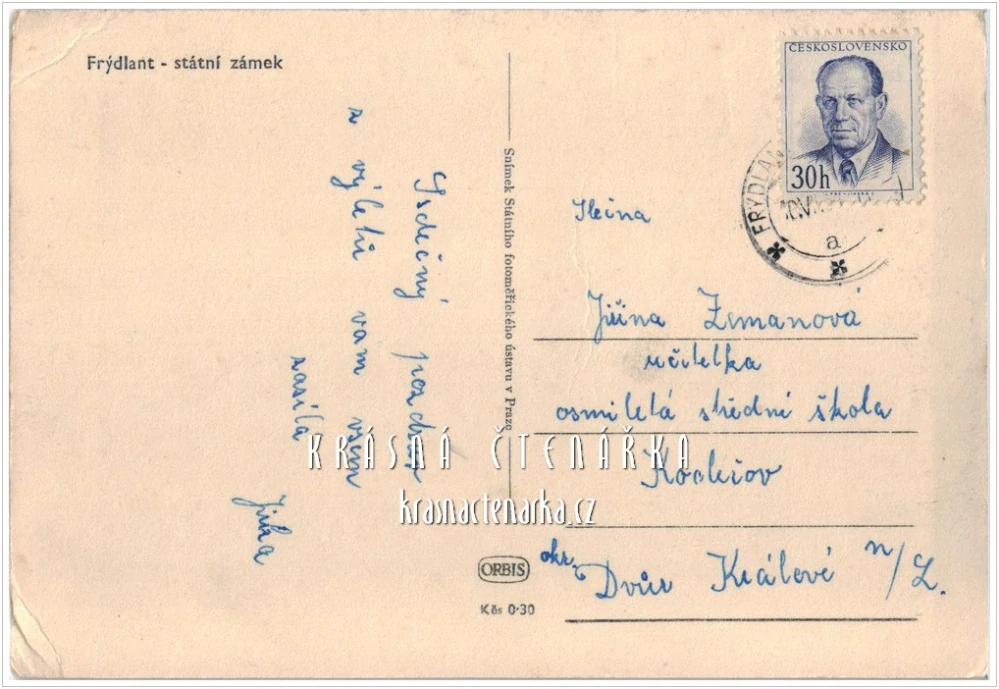 Frýdlant - státní zámek
Srdečný pozdrav
z výletu vam všem
zasílá
Jirka
Snímek Státního fotoměřického ústavu v Praze
ČESKOSLOVENSKO
30h
FRÝDLAN
a
Jiřina Zemanová
učitelka
osmiletá střední škola
okr. Dvůr Králové n/L.
KRÁSNÁ ČTENÁŘKA
krasnactenarka.cz
ORBIS
Kčs 0·30